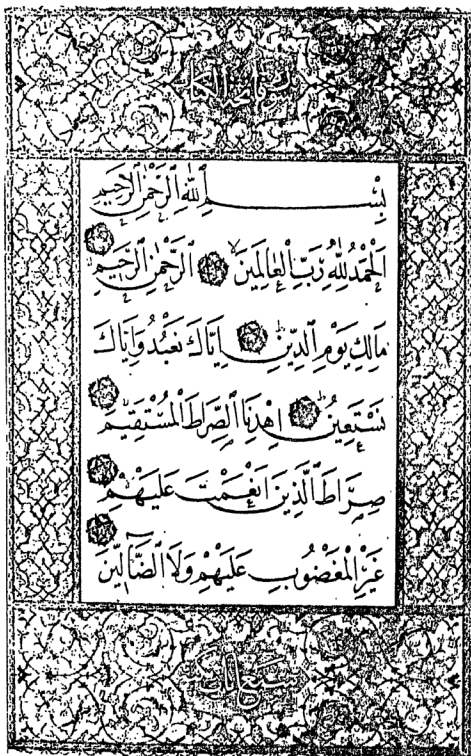 بِسْمِ اللّٰهِ الرَّحْمٰنِ الرَّحِيمِ
اَلْحَمْدُ لِلّٰهِ رَبِّ الْعَالَمِينَ الرَّحْمٰنِ الرَّحِيمِ
مَالِكِ يَوْمِ الدِّينِ اِيَّاكَ نَعْبُدُ وَاِيَّاكَ
نَسْتَعِينُ اِهْدِنَا الصِّرَاطَ الْمُسْتَقِيمَ
صِرَاطَ الَّذِينَ اَنْعَمْتَ عَلَيْهِمْ
غَيْرِ الْمَغْضُوبِ عَلَيْهِمْ وَلَا الضَّٓالِّينَ